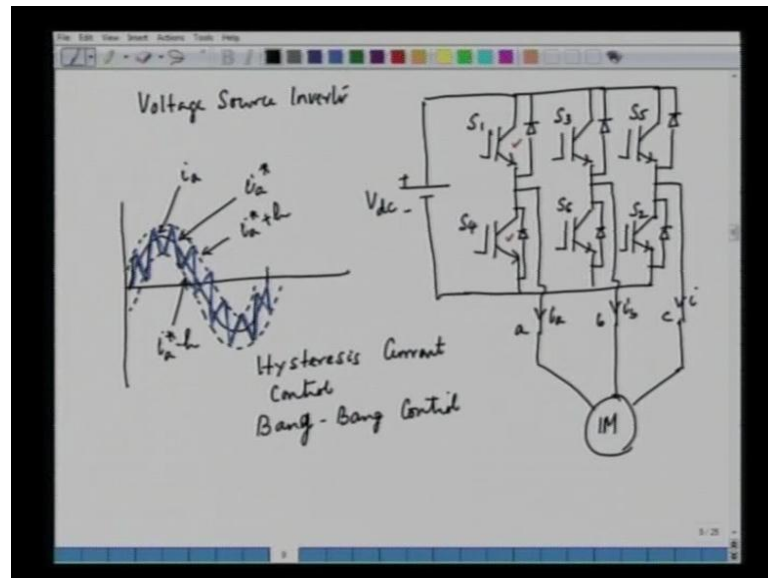 File Edit View Insert Actions Tools Help
Voltage Source Inverter
i_a
i_a*
i_a*+h
i_a*-h
Hysteresis Current
Control
Bang-Bang Control
S1
S3
S5
+
Vdc
-
S4
S6
S2
a
i_a
b
i_b
c
i
IM
5/25
9